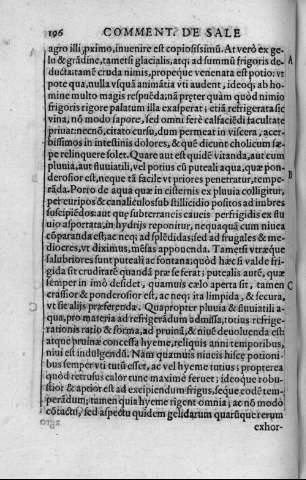 196 COMMENT. DE SALE
agro illi ꝓximo, inuenire est copiosissimũ. At verò ex ge-
lu & grãdine, tametsi glacialis, atq; ad summũ frigoris de-
ducta: tamẽ cruda nimis, propeque venenata est potio: vt
pote qua, nulla vsquã animãtia vti audent, ideoq; ab ho-
mine multo magis respuẽda; nã pręter quàm quòd nimio
frigoris rigore palatum illa exasperat; etiã refrigerata sic
vina, nõ modo sapore, sed omni ferè calfaciẽdi facultate
priuat: necnõ, citato cursu, dum permeat in viscera, acer-
bissimos in intestinis dolores, & quẽ dicunt cholicum sæ-
pe relinquere solet. Quare aut est quidẽ vitanda, aut cum
pluuia, aut fluuiatili, vel potius cũ puteali aqua, quæ pon-
derosior est, neque tã facile vt priores penetratur, tempe-
rãda. Porro de aqua quæ in cisternis ex pluuia colligitur,
per euripos & canaliculos sub stillicidio positos ad imbres
suscipiẽdos: aut quę subterraneis caueis perfrigidis ex flu
uio asportata, in hydrijs reponitur, nequaquã cum niuea
cõparanda est; ac neq; ad splẽdidas; sed ad frugales & me-
diocres, vt diximus, mẽsas apponenda. Tametsi vtræque
salubriores sunt puteali ac fontana: quòd hæc si valde fri-
gida sit cruditatẽ quandã præ se ferat; putealis autẽ, quæ
semper in imò desidet, quamuis cælo aperta sit, tamen
crassior & ponderosior est, ac neq; ita limpida, & secura,
vt fiet alijs præferẽda. Quapropter pluuia & fluuiatili a-
qua, pro materia ad refrigerãdum admissa, totius refrige-
rationis ratio & forma, ad pruinã, & niuẽ deuoluenda est
atque pruinæ concessa hyeme, reliquis anni temporibus,
niui est indulgendũ. Nam quamuis niueis hisce potioni-
bus semper vti tutũ esset, ac vel hyeme tutius; propterea
quòd retrusus calor tunc maximè feruet; ideoque robu-
stior & aptior est ad excipiendum frigus, seque codẽ tem-
perãdum; tamen quia hyeme rigent omnia; ac nõ modo
cõtactu, sed aspectu quidem gelidarum quarũque rerum
exhor-
A
B